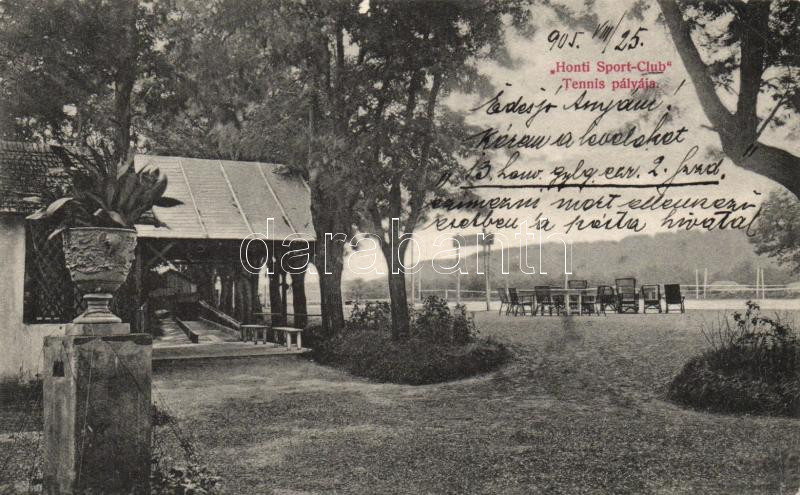 905. VIII/25.
„Honti Sport-Club"
Tennis pályája.
Édesjó Anyám!
Kérem a leveleket
„13. honv. gylg. ezr. 2. szd.
czimezni mert ellenkező
esetben a posta hivatal
darabanth